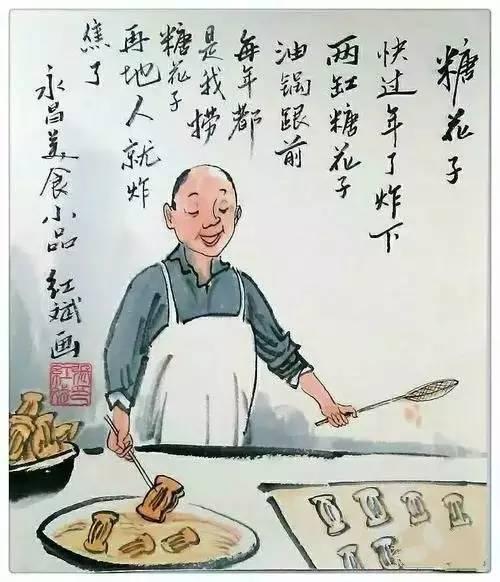 糖花子
快过年了炸下
两缸糖花子
油锅跟前
每年都
是我捞
糖花子
再地人就炸
焦了
永昌美食小品 红斌画